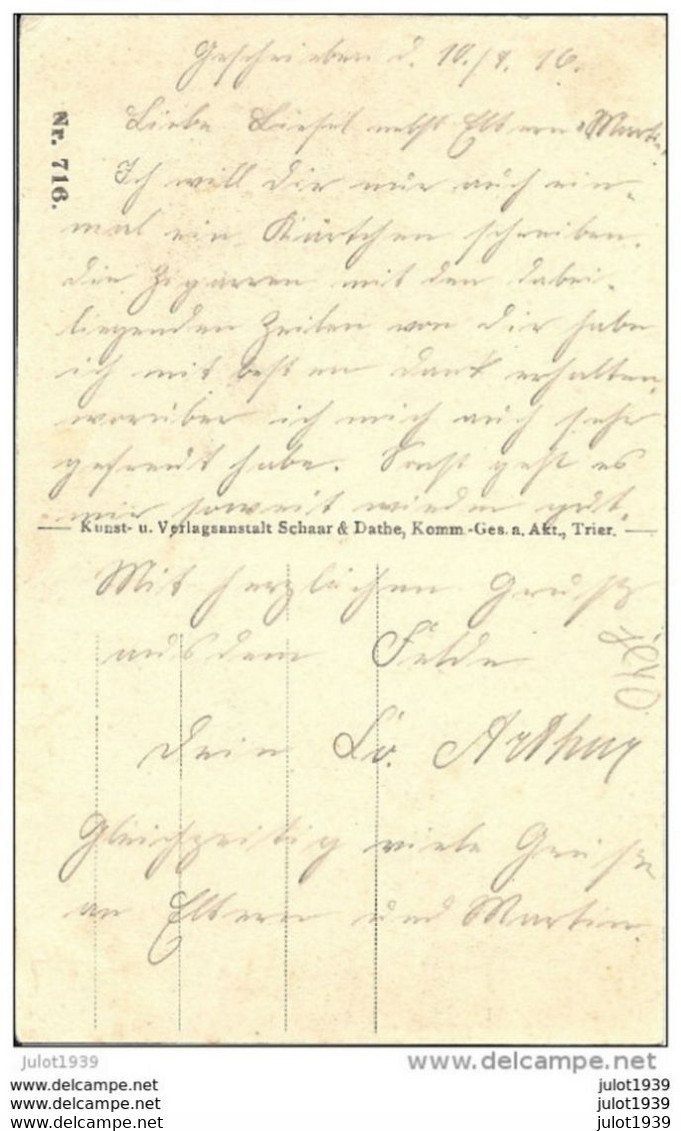 Geschrieben d. 10./4. 16.
Nr. 716.
Liebe Liesel nebst Eltern u. Martin,
Ich will Dir nur auch ein-
mal ein Kärtchen schreiben.
die Zigarren mit den dabei-
liegenden Zeilen von Dir habe
ich mit besten Dank erhalten,
worüber ich mich auch sehr
gefreut habe. Sonst geht es
mir soweit wieder gut.
Kunst- u. Verlagsanstalt Schaar & Dathe, Komm.-Ges. a. Akt., Trier.
Mit herzlichen Gruß
aus dem Felde
Dein Br. Arthur
Gleichzeitig viele Grüße
an Eltern und Martin.
julot1939
www.delcampe.net
www.delcampe.net
julot1939
www.delcampe.net
julot1939
www.delcampe.net
julot1939